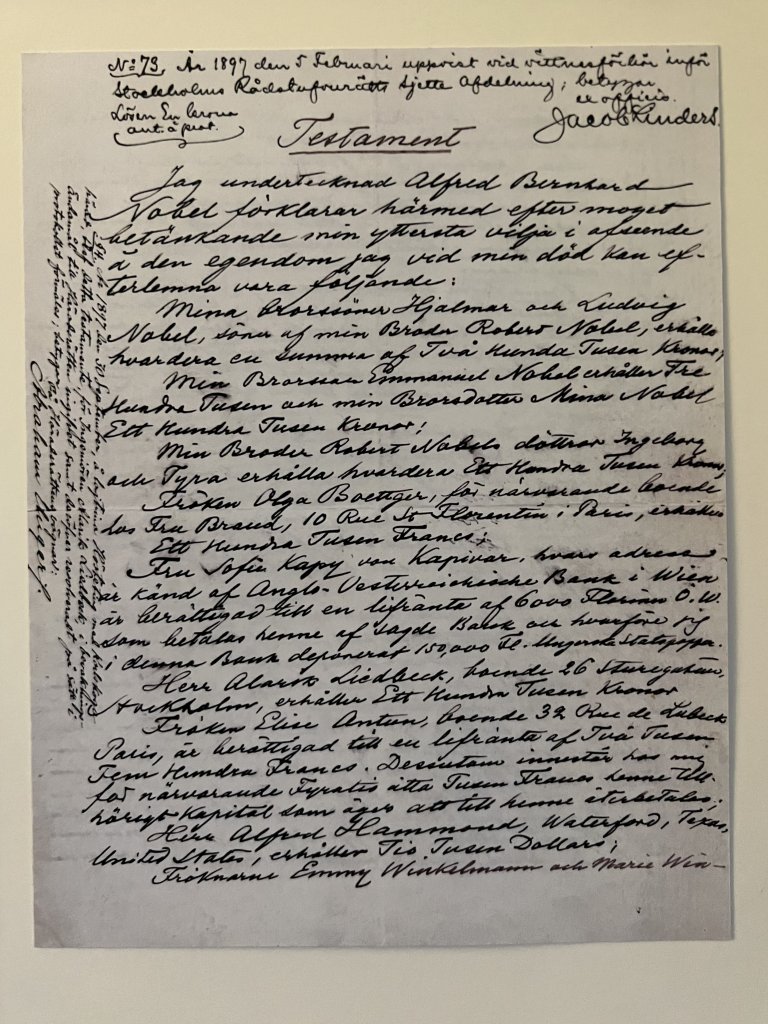 No 73, År 1897 den 5 Februari uppvist vid vittnesförhör inför
Stockholms Rådstufvurätts Sjette Afdelning; betygar
ex officio.
Lösen En krona
ant. å prot.
Jacob Linders.
Testament
Jag undertecknad Alfred Bernhard
Nobel förklarar härmed efter moget
betänkande min yttersta vilja i afseende
å den egendom jag vid min död kan ef-
terlemna vara följande:
Mina brorssöner Hjalmar och Ludvig
Nobel, söner af min Broder Robert Nobel, erhålla
hvardera en summa af Två Hundra Tusen Kronor;
Min Brorsson Emmanuel Nobel erhåller Tre
Hundra Tusen och min Brorsdotter Mina Nobel
Ett Hundra Tusen Kronor;
Min Broder Robert Nobels döttrar Ingeborg
och Tyra erhålla hvardera Ett Hundra Tusen Kronor;
Fröken Olga Boettger, för närvarande boende
hos Fru Brand, 10 Rue St Florentin i Paris, erhåller
Ett Hundra Tusen Francs;
Fru Sofie Kapy von Kapivar, hvars adress
är känd af Anglo-Oesterreichische Bank i Wien
är berättigad till en lifränta af 6000 Florins Ö.W.
som betalas henne af sagde Bank och hvarföre jag
i denna Bank deponerat 150,000 Fl. i Ungerska Statspapper.
Herr Alarik Liedbeck, boende 26 Sturegatan,
Stockholm, erhåller Ett Hundra Tusen Kronor
Fröken Elise Antun, boende 32 Rue de Lubeck
Paris, är berättigad till en lifränta af Två Tusen
Fem Hundra Francs. Dessutom innestår hos mig
för närvarande Fyratio åtta Tusen Francs henne till-
hörigt Kapital som äger att till henne återbetalas;
Herr Alfred Hammond, Waterford, Texas,
United States, erhåller Tio Tusen Dollars;
Fröknarne Emmy Winkelmann och Marie Win-
År 1897 den 30 September, å lagtima Hösteting med Karlskoga
härad, detta testamente för Ingeniören Alarik Liedbeck i
protokollet förmäles; betygar På Häradsrättens vägnar:
Abraham Unger.